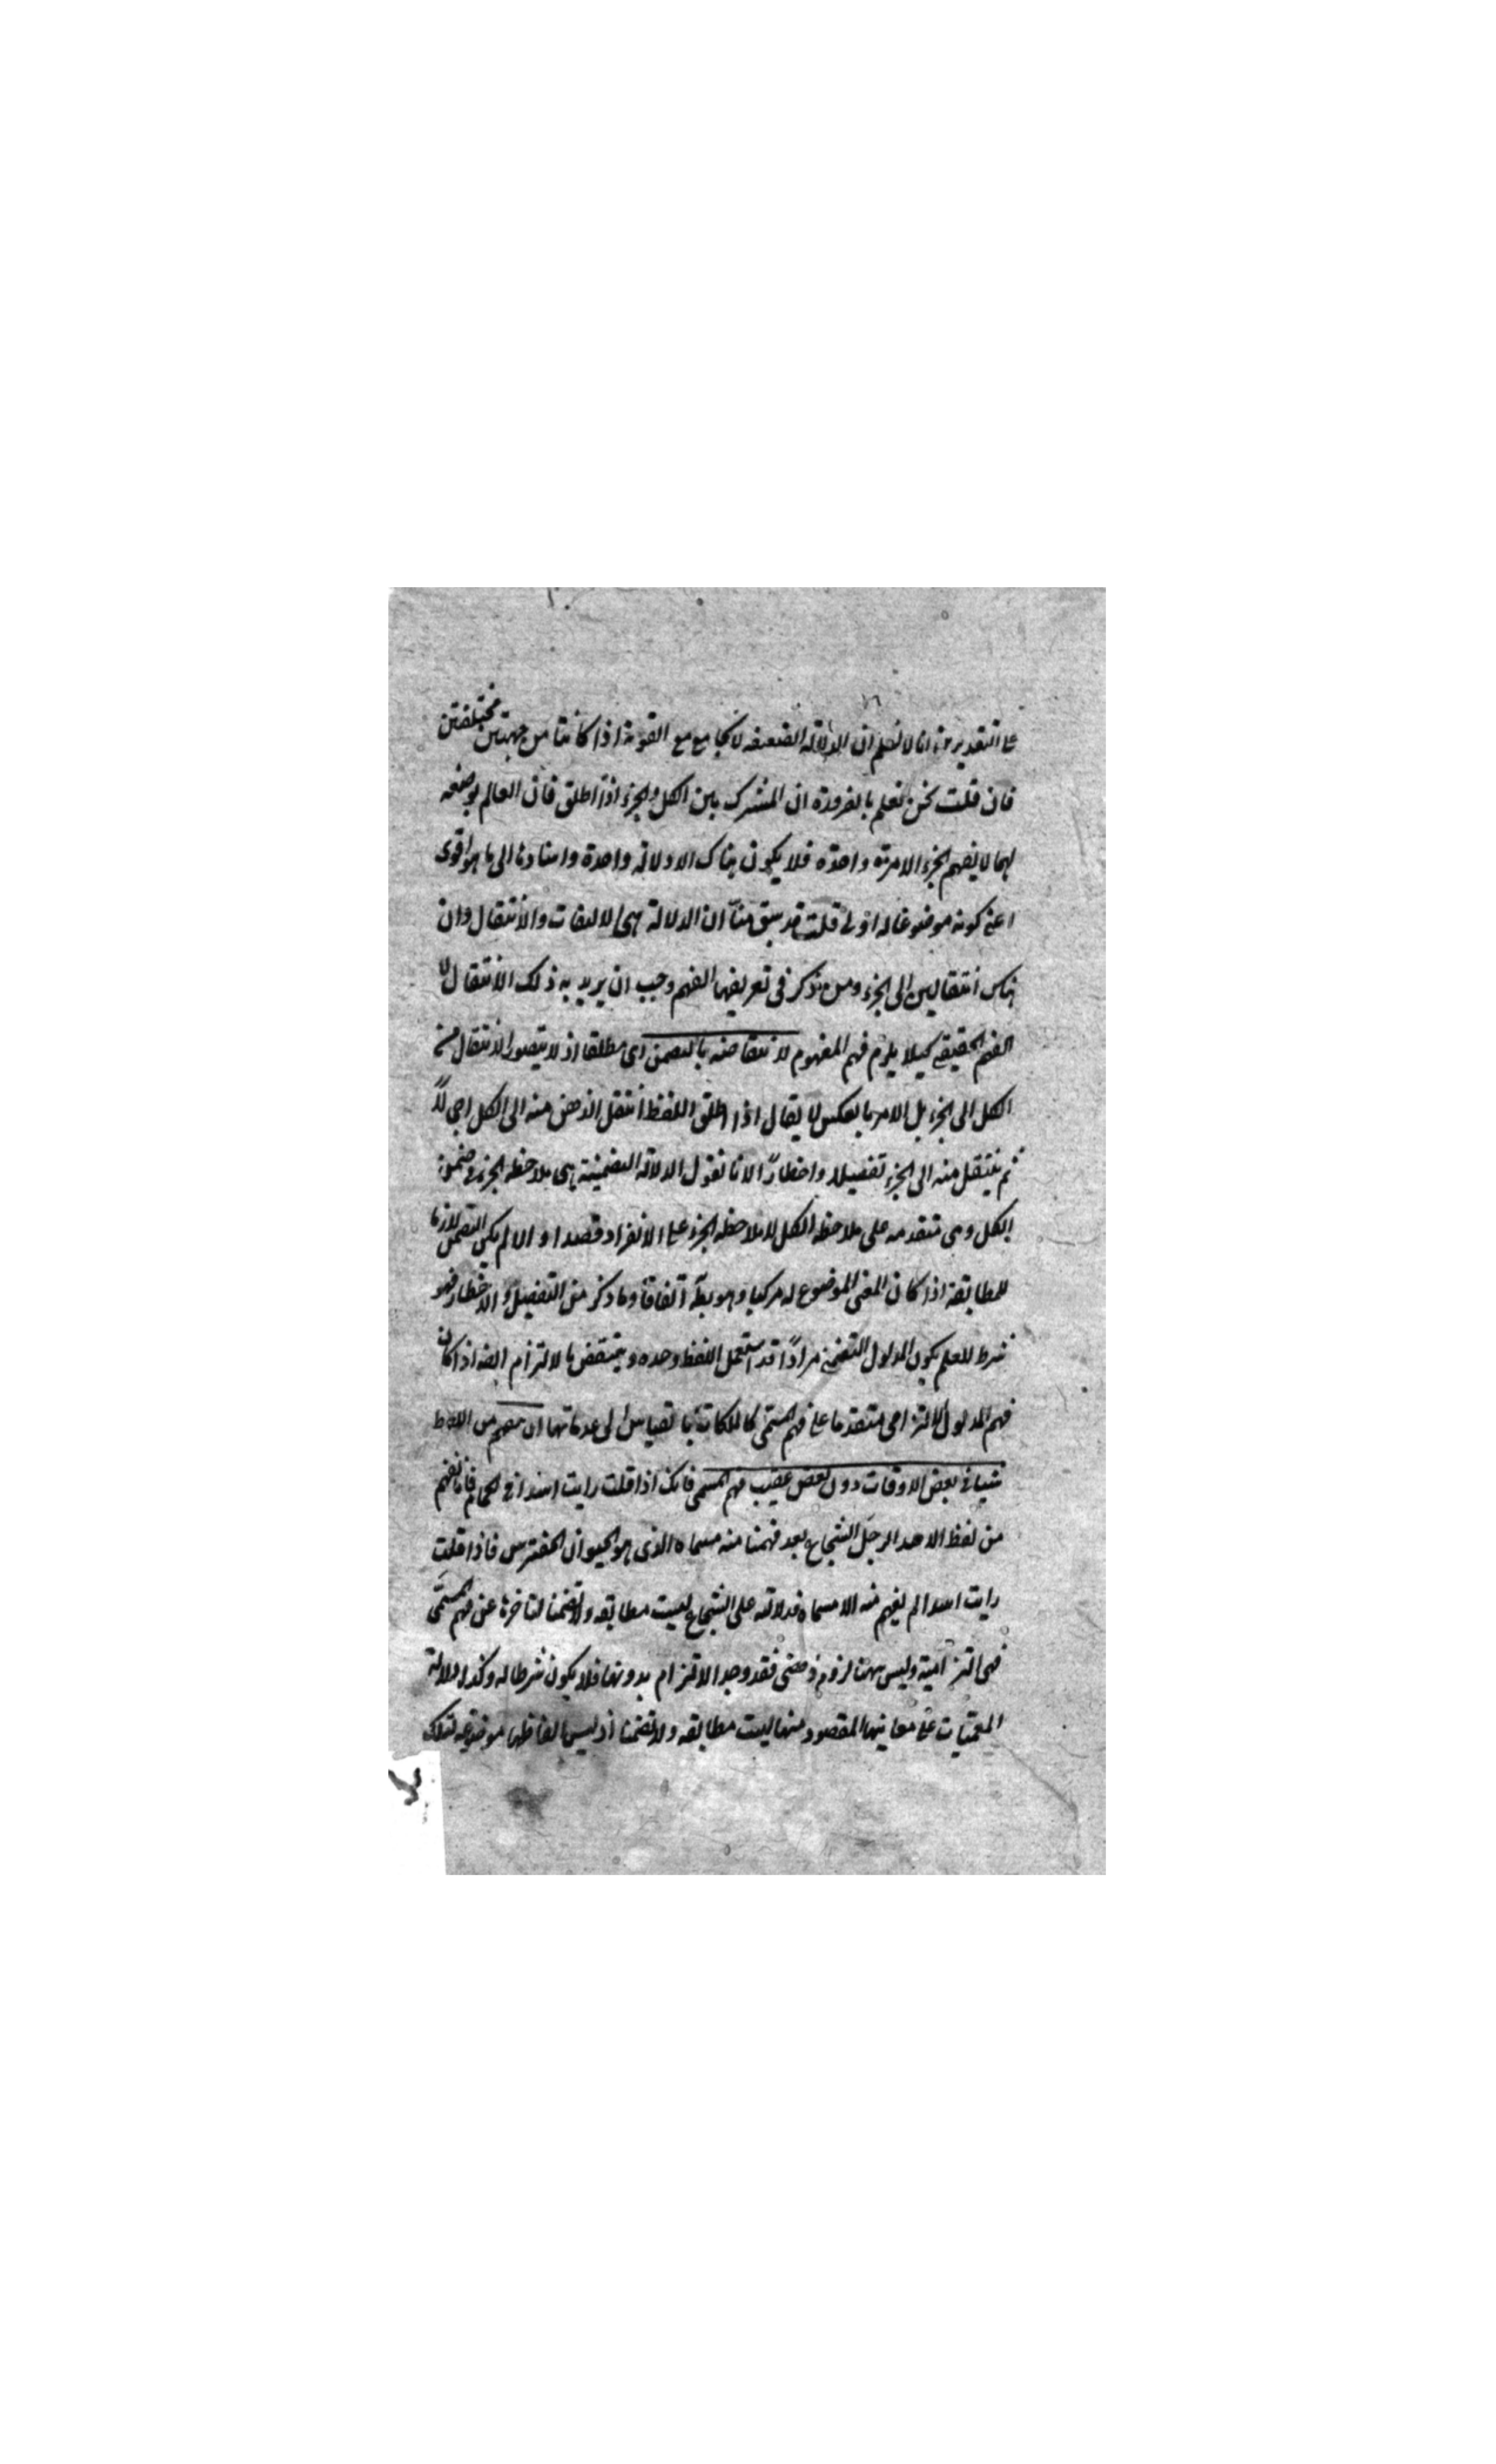 على التقديرين انا لا نعلم ان الدلالة الضعيفة لا تجامع مع القوية اذا كانتا من جهتين مختلفتين
فان قلت نحن نعلم بالضرورة ان المشترك بين الكل والجزء اذا اطلق فان العالم بوضعه
لهما لا يفهم الجزء الا مرة واحدة فلا يكون هناك الا دلالة واحدة واسنادها الى ما هو اقوى
اعني كونه موضوعا له اولى قلت قد سبق منا ان الدلالة هي الالتفات والانتقال وان
هناك انتقالين الى الجزء ومن يذكر في تعريفها الفهم وجب ان يريد به ذلك الانتقال لا
الفهم الحقيقي كيلا يلزم فهم المفهوم لانتقاضه بالتضمن اى مطلقا اذ لا يتصور الانتقال من
الكل الى الجزء بل الامر بالعكس لا يقال اذا اطلق اللفظ انتقل الذهن منه الى الكل اجمالا
ثم ينتقل منه الى الجزء تفصيلا واخطارا لانا نقول الدلالة التضمنية هى ملاحظة الجزء في ضمن
الكل وهى متقدمة على ملاحظة الكل لا ملاحظة الجزء على الانفراد قصدا والا لم يكن التضمن لازما
للمطابقة اذا كان المعنى الموضوع له مركبا وهو بط اتفاقا وما ذكر من التفصيل والاخطار فهو
شرط للعلم بكون المدلول التضمني مرادا قد استعمل اللفظ وحده وينتقض بالالتزام ايضا اذا كان
فهم المدلول الالتزامى متقدما على فهم المسمى كالملكات بالقياس الى عدماتها ان يفهم من اللفظ
شيئا في بعض الاوقات دون بعض عقيب فهم المسمى فانك اذا قلت رايت اسدا في الحمام فانا نفهم
من لفظ الاسد الرجل الشجاع بعد فهمنا منه مسماه الذى هو الحيوان المفترس فاذا قلت
رايت اسدا لم يفهم منه الا مسماه فدلالته على الشجاع ليست مطابقه ولا تضمنا لتاخرها عن فهم المسمى
فهى التزامية وليس ههنا لزوم ذهني فقد وجد الالتزام بدونها فلا يكون شرطا له وكذا دلالة
المعميات على معانيها المقصود منها ليست مطابقه ولا تضمنا اذ ليس الفاظها موضوعه لتلك